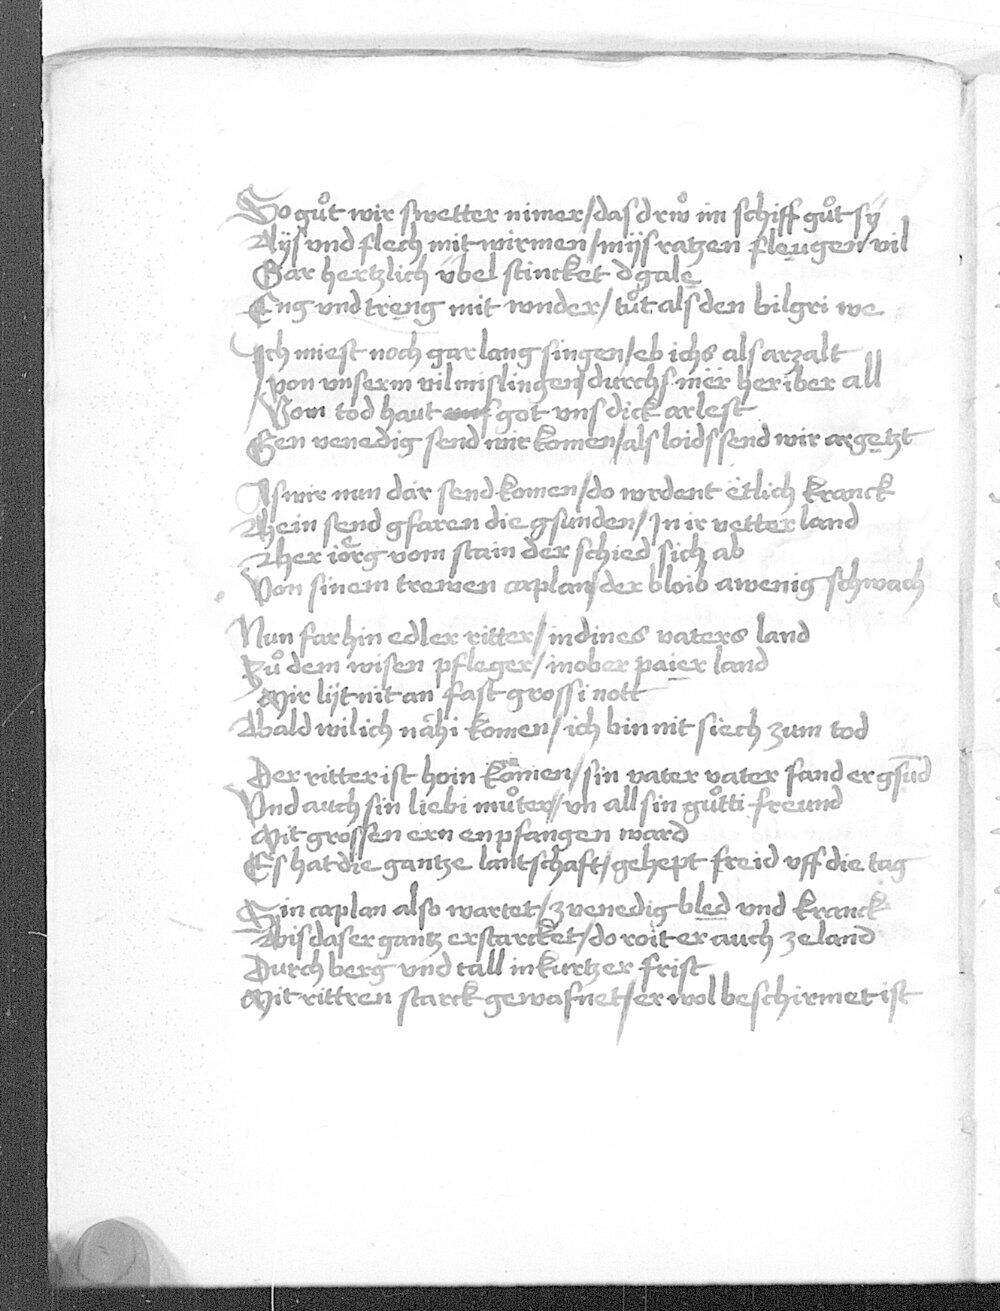 So gůt wir swetter nimer / das d rẘ im schiff gůt sy
Nijs vnd flech mit wirmen / mijs ratzen fleugen vil
Gar hertzlich übel stincket d gale
Eng vnd treng mit wnder / tůt als den bilgri we
Ich miest noch gar lang singen / eb ichs als arzalt
von vnserm vil mislingen / durchs mër her iber all
Vom tod haut got vns dick arlest
Gen venedig send wir komen / als loids send wir argetzt
As wir nun dar send komen / do wrdent ëtlich kranck
Ahein send gfaren die gsunden / In ir vetter land
Aher iörg vom stain der schied sich ab
Von sinem trewen caplan / der bloib a wenig schwach
Nun far hin edler ritter / in dines vaters land
Zů dem wisen pfleger / in ober paier land
Mir lijt nit an fast grossi nott
Abald wil ich nähi komen / ich bin nit siech zum tod
Der ritter ist hoin komen / sin vater vater fand er gsūd
Vnd auch sin liebi můter / vn all sin gůtti freund
Mit grossen ern enpfangen ward
Es hat die gantze lantschaft / gehept freid vff die tag
Sin caplan also wartet / z venedig bled vnd kranck
Abis das er gantz erstarcket / do roit er auch ze land
Durch berg vnd tall in kurtzer frist
Mit rittren starck gewafnet / er wol beschirmet ist